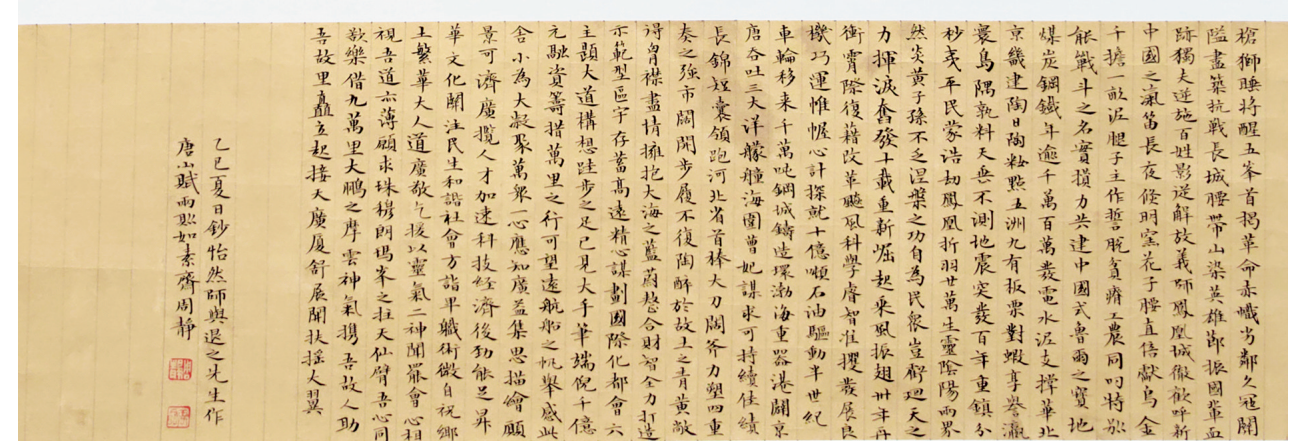 槍獅睡將醒五峯首揭革命赤幟勞鄰久冠關
隘盡築抗戰長城腰帶山染英雄節振國輩血
跡獨夫逆施百姓影從解放義師鳳凰城徹歡呼新
中國之氣笛長夜候明窯花子腰直倍獻烏金
千擔一畝泥腿子主作誓脫貧瘠工農同叼特別
能戰斗之名實損力共建中國式魯爾之寶地
煤炭鋼鐵年逾千萬百萬發電水泥支撐華北
京畿建陶日陶粧點五洲九有板栗對蝦享譽瀛
寰烏隅孰料天無不測地震突發百年重鎮分
秒夷平民蒙浩劫鳳凰折羽廿萬生靈陰陽兩界
然炎黃子孫不乏涅槃之功自為民眾豈轩迴天之
力揮淚奮發十載重新崛起乘風振翅卅年再
衝霄際復藉改革飈風科學睿智准攫發展良
機巧運惟幄心計探就十億噸石油驅動半世紀
車輪移來千萬吨鋼城鑄造環渤海重器港闢京
唐吞吐三大洋艨艟海圍曹妃謀求可持續佳績
長錦短囊領跑河北省首棒大刀闊斧力塑四重
奏之強市闊開步履不復陶醉於故土之青黃敞
得胷襟盡情擁抱大海之藍蔚整合財智全力打造
示範型區宇存蓄高遠精心謀劃國際化都會六
主題大道構想跬步之足已見大手筆端倪千億
元融資籌措萬里之行可望遠航船之帆舉感此
舍小為大凝聚萬眾一心應知廣益集思描繪願
景可濟廣攬人才加速科技經濟後勁能足昇
華文化關注民生和諧社會方諧畢職術微自祝鄉
土繁華大人道廣敬乞援以靈氣二神聞罷會心相
視吾道亦薄願求珠穆朗瑪峯之拄天仙臂吾心同
歡樂借九萬里大鵬之摩雲神氣攜吾故人助
吾故里矗立起接天廣廈舒展開扶搖大翼
乙巳夏日鈔怡然師與退之先生作
唐山賦雨點如素齋周靜